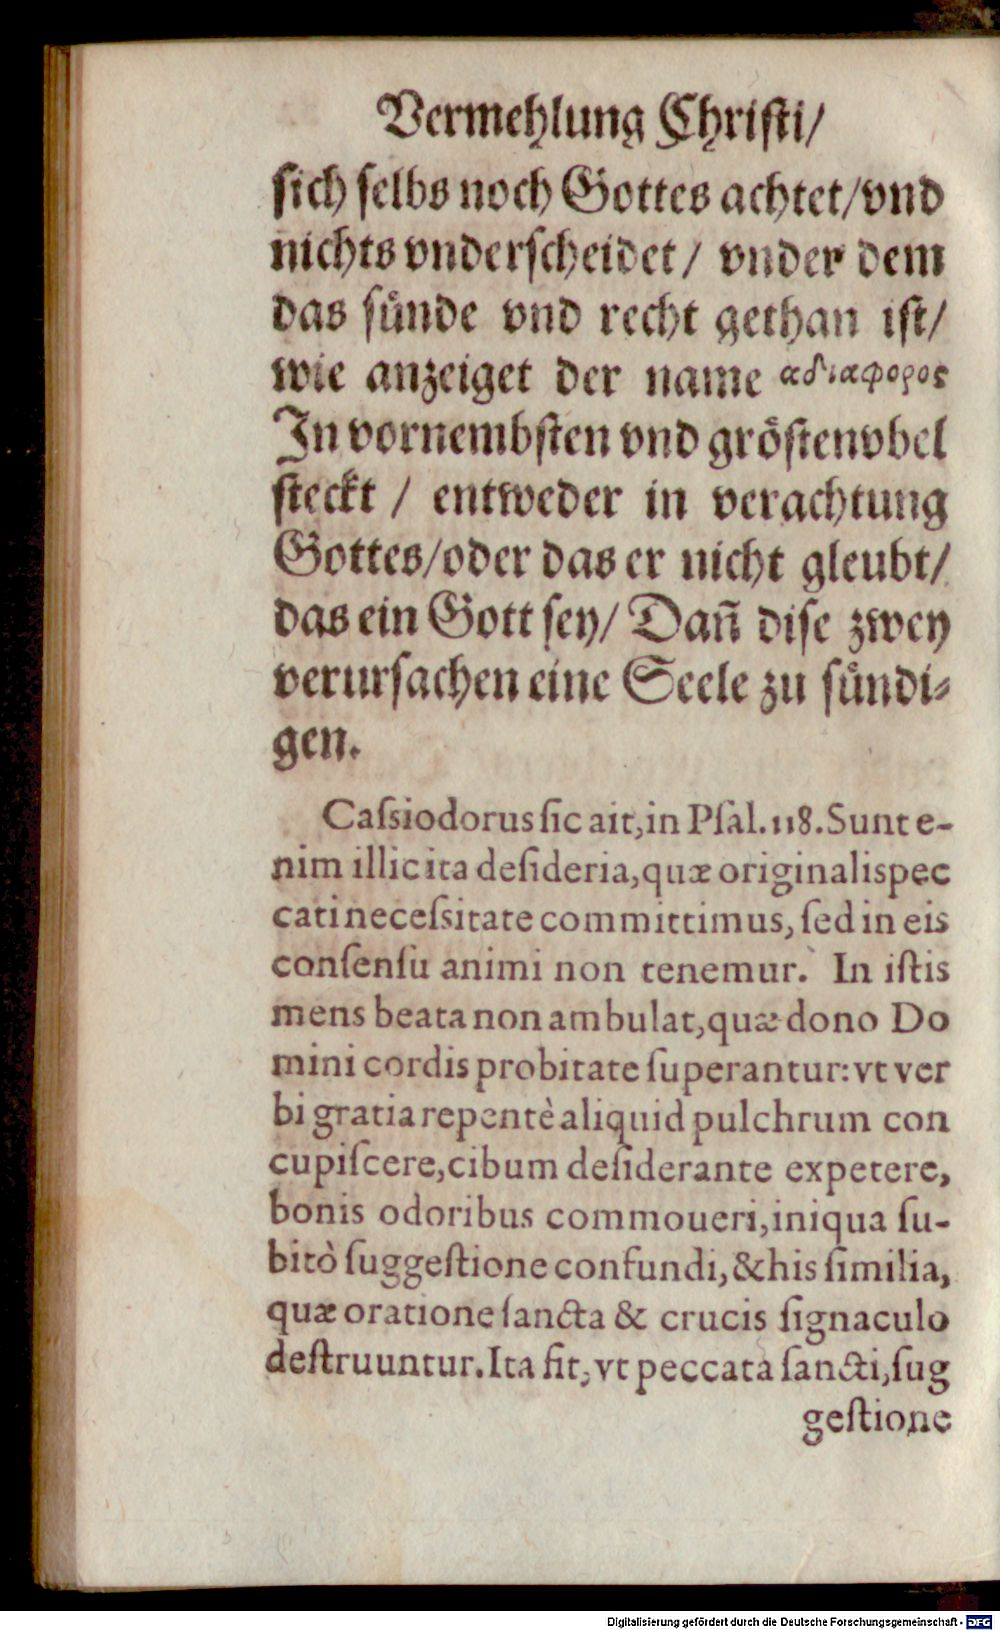 Vermehlung Christi/
sich selbs noch Gottes achtet/vnd
nichts vnderscheidet/ vnder dem
das sünde vnd recht gethan ist/
wie anzeiget der name αδιαφορος
In vornembsten vnd gröstenvbel
steckt / entweder in verachtung
Gottes/oder das er nicht gleubt/
das ein Gott sey/ Dañ dise zwey
verursachen eine Seele zu sündi-
gen.
Caſsiodorus ſic ait, in Pſal. 118. Sunt e-
nim illicita deſideria, quæ originalis pec
cati neceſsitate committimus, ſed in eis
conſenſu animi non tenemur. In iſtis
mens beata non ambulat, quæ dono Do
mini cordis probitate ſuperantur: vt ver
bi gratia repentè aliquid pulchrum con
cupiſcere, cibum deſiderante expetere,
bonis odoribus commoueri, iniqua ſu-
bitò ſuggeſtione confundi, & his ſimilia,
quæ oratione ſancta & crucis ſignaculo
deſtruuntur. Ita fit, vt peccata ſancti, ſug
geſtione
Digitalisierung gefördert durch die Deutsche Forschungsgemeinschaft - DFG